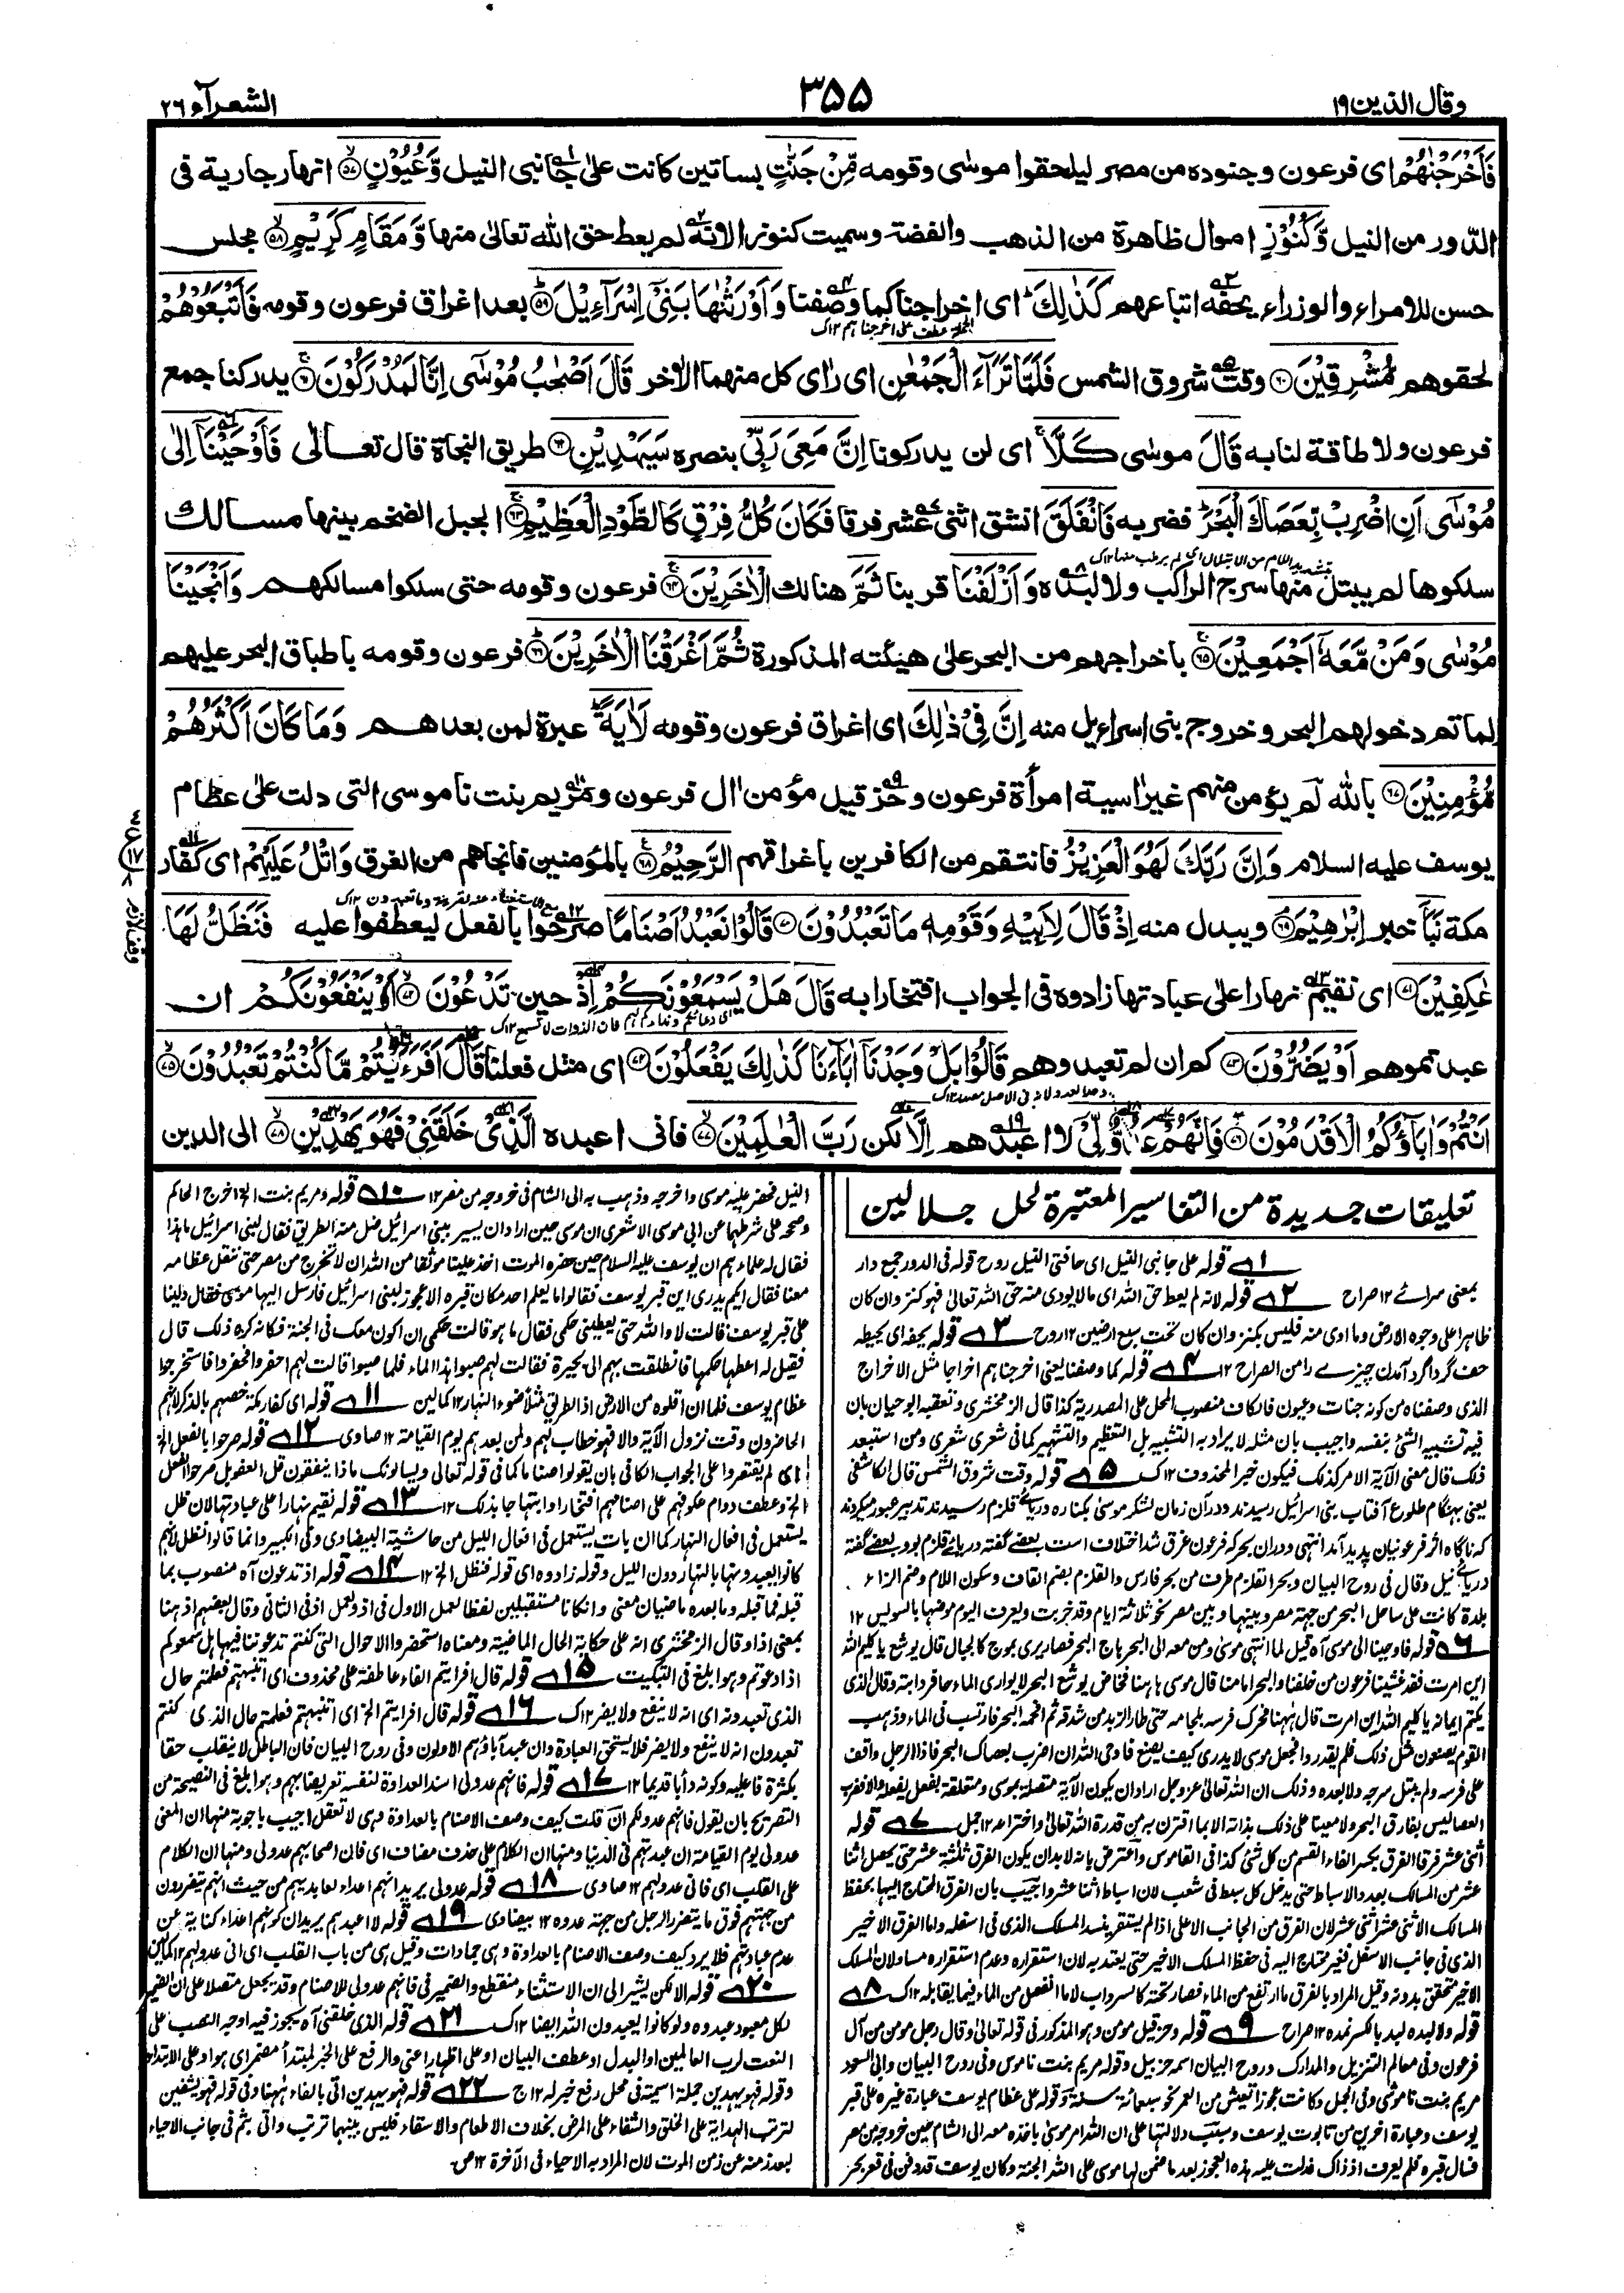 وقال الذين ١٩
٣٥٥
الشعرآء ٢٦
فَاَخْرَجْنٰهُمْ اى فرعون وجنوده من مصر ليلحقوا موسٰى وقومه مِّنْ جَنّٰتٍ بساتين كانت علىٰ جانبى النيل وَّعُيُوْنٍ ۝٥٧ انهار جارية فى
الدّور من النيل وَّكُنُوْزٍ اموال ظاهرة من الذهب والفضة وسميت كنوزا لانه لم يعط حق الله تعالىٰ منها وَّمَقَامٍ كَرِيْمٍ ۝٥٨ مجلس
حسن للامراء والوزراء يحفه اتباعهم كَذٰلِكَ اى اخراجنا كما وصفنا وَاَوْرَثْنٰهَا بَنِيْٓ اِسْرَآءِيْلَ ۝٥٩ بعد اغراق فرعون وقومه فَاَتْبَعُوْهُمْ
لحقوهم مُّشْرِقِيْنَ ۝٦٠ وقت شروق الشمس فَلَمَّا تَرَآءَ الْجَمْعٰنِ اى راى كل منهما الاٰخر قَالَ اَصْحٰبُ مُوْسٰٓى اِنَّا لَمُدْرَكُوْنَ ۝٦١ يدركنا جمع
فرعون ولا طاقة لنا به قَالَ موسٰى كَلَّا اى لن يدركونا اِنَّ مَعِيَ رَبِّيْ بنصره سَيَهْدِيْنِ ۝٦٢ طريق النجاة قال تعالى فَاَوْحَيْنَآ اِلٰى
مُوْسٰٓى اَنِ اضْرِبْ بِّعَصَاكَ الْبَحْرَ فضربه فَانْفَلَقَ انشق اثنى عشر فرقا فَكَانَ كُلُّ فِرْقٍ كَالطَّوْدِ الْعَظِيْمِ ۝٦٣ الجبل الضخم بينها مسالك
سلكوها لم يبتل منها سرج الراكب ولا لبده وَاَزْلَفْنَا قربنا ثَمَّ هنالك الْاٰخَرِيْنَ ۝٦٤ فرعون وقومه حتى سلكوا مسالكهم وَاَنْجَيْنَا
مُوْسٰى وَمَنْ مَّعَهٗٓ اَجْمَعِيْنَ ۝٦٥ باخراجهم من البحر علىٰ هيئته المذكورة ثُمَّ اَغْرَقْنَا الْاٰخَرِيْنَ ۝٦٦ فرعون وقومه باطباق البحر عليهم
لما تم دخولهم البحر وخروج بنى اسراءيل منه اِنَّ فِيْ ذٰلِكَ اى اغراق فرعون وقومه لَاٰيَةً عبرة لمن بعدهم وَمَا كَانَ اَكْثَرُهُمْ
مُّؤْمِنِيْنَ ۝٦٧ بالله لم يؤمن منهم غير اٰسية امرأة فرعون وحزقيل مؤمن اٰل فرعون ومريم بنت ناموسى التى دلت علىٰ عظام
يوسف عليه السلام وَاِنَّ رَبَّكَ لَهُوَ الْعَزِيْزُ فانتقم من الكافرين باغراقهم الرَّحِيْمُ ۝٦٨ بالمؤمنين فانجاهم من الغرق وَاتْلُ عَلَيْهِمْ اى كفار
مكة نَبَاَ خبر اِبْرٰهِيْمَ ۝٦٩ ويبدل منه اِذْ قَالَ لِاَبِيْهِ وَقَوْمِهٖ مَا تَعْبُدُوْنَ ۝٧٠ قَالُوْا نَعْبُدُ اَصْنَامًا صرحوا بالفعل ليعطفوا عليه فَنَظَلُّ لَهَا
عٰكِفِيْنَ ۝٧١ اى نقيم نهارا على عبادتها زادوه فى الجواب افتخارا به قَالَ هَلْ يَسْمَعُوْنَكُمْ اِذْ حين تَدْعُوْنَ ۝٧٢ اَوْ يَنْفَعُوْنَكُمْ ان
عبدتموهم اَوْ يَضُرُّوْنَ ۝٧٣ كم ان لم تعبدوهم قَالُوْا بَلْ وَجَدْنَآ اٰبَآءَنَا كَذٰلِكَ يَفْعَلُوْنَ ۝٧٤ اى مثل فعلنا قَالَ اَفَرَءَيْتُمْ مَّا كُنْتُمْ تَعْبُدُوْنَ ۝٧٥
اَنْتُمْ وَاٰبَآؤُكُمُ الْاَقْدَمُوْنَ ۝٧٦ فَاِنَّهُمْ عَدُوٌّ لِّيْٓ لا اعبدهم اِلَّا لكن رَبَّ الْعٰلَمِيْنَ ۝٧٧ فانى اعبده الَّذِيْ خَلَقَنِيْ فَهُوَ يَهْدِيْنِ ۝٧٨ الى الدين
تعليقات جديدة من التفاسير المعتبرة لحل جلالين
١ قوله على جانبى النيل اى حافتى النيل روح قوله فى الدور جمع دار
بمعنى سرائے ١٢ صراح ٢ قوله لانه لم يعط حق الله اى مالا يودى منه حق الله تعالىٰ فهو كنز وان كان
ظاهرا على وجوه الارض وما ادى منه فليس بكنز وان كان تحت سبع ارضين ١٢ روح ٣ قوله يحفه اى يحيطه
حف گرداگرد آمدن چیزے را من الصراح ١٢ ٤ قوله كما وصفنا يعنى اخرجناهم اخراجا مثل الاخراج
الذى وصفناه من كونه جنات وعيون فالكاف منصوب المحل على المصدرية كذا قال الزمخشرى وتعقبه ابو حيان بان
فيه تشبيه الشئ بنفسه واجيب بان مثله لا يراد به التشبيه بل التعظيم والتشهير كما فى شعرى شعرى ومن استبعد
ذلك قال معنى الآية الامر كذلك فيكون خبر المحذوف ١٢ ك ٥ قوله وقت شروق الشمس قال الكاشفى
يعنى بهنگام طلوع آفتاب ببنى اسرائيل رسيدند ودرآن زمان لشكر موسٰى بكناره دريائے قلزم رسيدند تدبير عبور ميكردند
كه ناگاه اثر فرعونيان پديد آمد انتهى ودران بحر كه فرعون غرق شد اختلاف است بعضے گفته دريائے قلزم بود وبعضے گفته
دريائے نيل وقال فى روح البيان وبحر القلزم طرف من بحر فارس والقلزم بضم القاف وسكون اللام وضم الزاء
بلدة كانت على ساحل البحر من جهة مصر وبينها وبين مصر نحو ثلاثة ايام وقد خربت ويعرف اليوم موضعها بالسويس ١٢
٦ قوله فاوحينا الى موسى آه قيل لما انتهى موسىٰ ومن معه الى البحر هاج البحر فصار يرى بموج كالجبال قال يوشع يا كليم الله
اين امرت فقد غشينا فرعون من خلفنا والبحر امامنا قال موسىٰ هاهنا فخاض يوشع البحر لا يوارى الماء حافر دابته وقال الذى
يكتم ايمانه يا كليم الله اين امرت قال ههنا فحرك فرسه بلجامه حتى طار الزبد من شدقه ثم اقحمه البحر فارتسب فى الماء وذهب
القوم يصنعون مثل ذلك فلم يقدروا فجعل موسى لا يدرى كيف يصنع فاوحى الله ان اضرب بعصاك البحر فاذا الرجل واقف
على فرسه ولم يبتل سرجه ولا بده وذلك ان الله تعالىٰ عز وجل اراد ان يكون الآية متصلة بموسى ومتعلقة بفعل يفعله والا فضرب
العصا ليس بفارق البحر ولا معينا على ذلك بذاته الا بما اقترن به من قدرة الله تعالىٰ واختراعه ١٢ جمل ٧ قوله
اثنى عشر فرقا الفرق بكسر الفاء القسم من كل شئ كذا فى القاموس واعترض بانه لا بد ان يكون الفرق ثلثة عشر حتى يحصل اثنا
عشر من المسالك بعدد الاسباط حتى يدخل كل سبط فى شعب لان اسباط اثنا عشر واجيب بان الفرق المحتاج اليها بحفظ
المسالك الاثنى عشر اثنى عشر لان الفرق من الجانب الاعلى اذا لم يستقر ينسد المسلك الذى فى اسفله واما الفرق الاخير
الذى فى جانب الاسفل فغير محتاج اليه فى حفظ المسلك الاخير حتى يعتد به لان استقراره وعدم استقراره مساو لان المسلك
الاخير متحقق بدونه وقيل المراد بالفرق ما ارتفع من الماء فصار تحته كالسرداب لا ما انفصل من الماء فيما يقابله ١٢ ك ٨
قوله ولا لبده لبد بالكسر نمده ١٢ صراح ٩ قوله وحزقيل مومن وهو المذكور فى قوله تعالىٰ وقال رجل مومن من آل
فرعون وفى معالم التنزيل والمدارك وروح البيان اسمه حزبيل وقوله مريم بنت ناموس وفى روح البيان وابى السعود
مريم بنت ناموشى وفى الجمل وكانت عجوزا تعيش من العمر نحو سبعمائة سنة وقوله على عظام يوسف عبارة غيره على قبر
يوسف وعبارة اخرى من تابوت يوسف وسبب دلالتها على ان الله امر موسىٰ باخذه معه الى الشام حين خروجه من مصر
فسال قبره فلم يعرف اذ ذاك فدلت عليه هذه العجوز بعد ما ضمن لها موسى على الله الجنة وكان يوسف قد دفن فى قعر بحر
النيل فحضر عليه موسى واخرجه وذهب به الى الشام فى خروجه من مصر ١٢ ١٠ قوله ومريم بنت الخ اخرج الحاكم
وصححه على شرطهما عن ابى موسى الاشعرى ان موسى حين اراد ان يسير ببنى اسرائيل ضل عنه الطريق فقال لبنى اسرائيل ما هذا
فقال له علماءهم ان يوسف عليه السلام حين حضره الموت اخذ علينا موثقا من الله ان لا نخرج من مصر حتى ننقل عظامه
معنا فقال ايكم يدرى اين قبر يوسف فقالوا ما يعلم احد مكان قبره الا عجوز لبنى اسرائيل فارسل اليها موسى فقال دلينا
على قبر يوسف قالت لا والله حتى يعطينى حكمى فقال ما هو قالت حكمى ان اكون معك فى الجنة فكانه كره ذلك قال
فقيل له اعطها حكمها فانطلقت بهم الى بحيرة فقالت لهم صبوا هذا الماء فلما صبوا قالت لهم احفروا فحفروا فاستخرجوا
عظام يوسف فلما ان اقلوه من الارض اذا الطريق مثل ضوء النهار ١٢ كمالين ١١ قوله اى كفار مكة خصهم بالذكر لانهم
الحاضرون وقت نزول الآية والا فهو خطاب لهم ولمن بعدهم ليوم القيامة ١٢ صاوى ١٢ قوله صرحوا بالفعل الخ
اى لم يقتصروا على الجواب الكافى بان يقولوا اصناما كما فى قوله تعالى ويسالونك ماذا ينفقون قل العفو بل صرحوا بالفعل
الخ وعطف دوام عكوفهم على اصنامهم افتخارا وابتهاجا بذلك ١٢ ١٣ قوله نقيم نهارا على عبادتها لان ظل
يستعمل فى افعال النهار كما ان بات يستعمل فى افعال الليل من حاشية البيضاوى وفى الكبير وانما قالوا فنظل لانهم
كانوا يعبدونها بالنهار دون الليل وقوله زادوه اى قوله فنظل الخ ١٢ ١٤ قوله اذ تدعون آه منصوب بما
قبله فما قبله وما بعده ماضيان معنى وان كانا مستقبلين لفظا لعمل الاول فى اذ ولعمل اذ فى الثانى وقال بعضهم اذ هنا
بمعنى اذا وقال الزمخشرى انه على حكاية الحال الماضية ومعناه استحضروا الاحوال التى كنتم تدعوننا فيها هل سمعوكم
اذا دعوتم وهو ابلغ فى التبكيت ١٥ قوله قال افرايتم الفاء عاطفة على محذوف اى انتبهتم فعلمتم حال
الذى تعبدونه اى انه لا ينفع ولا يضر ١٢ ك ١٦ قوله قال افرايتم الخ اى انتبهتم فعلمتم حال الذى كنتم
تعبدون انه لا ينفع ولا يضر فلا يستحق العبادة وان عبد آباؤهم الاولون وفى روح البيان فان الباطل لا ينقلب حقا
بكثرة فاعليه وكونه دأبا قديما ١٢ ١٧ قوله فانهم عدو لى اسند العداوة لنفسه تعريضا بهم وهو ابلغ فى النصيحة من
التصريح بان يقول فانهم عدو لكم ان قلت كيف وصف الاصنام بالعداوة وهى لا تعقل اجيب باجوبة منها ان المعنى
عدو لى يوم القيامة ان عبدتهم فى الدنيا ومنها ان الكلام على حذف مضاف اى فان اصحابهم عدو لى ومنها ان الكلام
على القلب اى فانى عدو لهم ١٢ صاوى ١٨ قوله عدو لى يريد انهم اعداء لعابديهم من حيث انهم يتضررون
من جهتهم فوق ما يتضرر الرجل من جهة عدوه ١٢ بيضاوى ١٩ قوله لا اعبدهم يريد ان كونهم اعداء كناية عن
عدم عبادتهم فلا يرد كيف وصف الاصنام بالعداوة وهى جمادات وقيل هى من باب القلب اى انى عدو لهم ١٢ كمالين
٢٠ قوله الا لكن يشير الى ان الاستثناء منقطع والضمير فى فانهم عدو لى للاصنام وقد يجعل متصلا على ان الضمير
لكل معبود عبدوه ولو كانوا يعبدون الله ايضا ١٢ ك ٢١ قوله الذى خلقنى آه يجوز فيه اوجه النصب على
النعت لرب العالمين او البدل او عطف البيان او على اظهار اعنى والرفع على الخبر لمبتدأ مضمر اى هو او على الابتداء
وقوله فهو يهدين جملة اسمية فى محل رفع خبر له ١٢ ج ٢٢ قوله فهو يهدين اتى بالفاء ههنا وفى قوله فهو يشفين
لترتب الهداية على الخلق والشفاء على المرض بخلاف الاطعام والاسقاء فليس بينهما ترتب واتى بثم فى جانب الاحياء
لبعد زمنه عن زمن الموت لان المراد به الاحياء فى الآخرة ١٢ ص